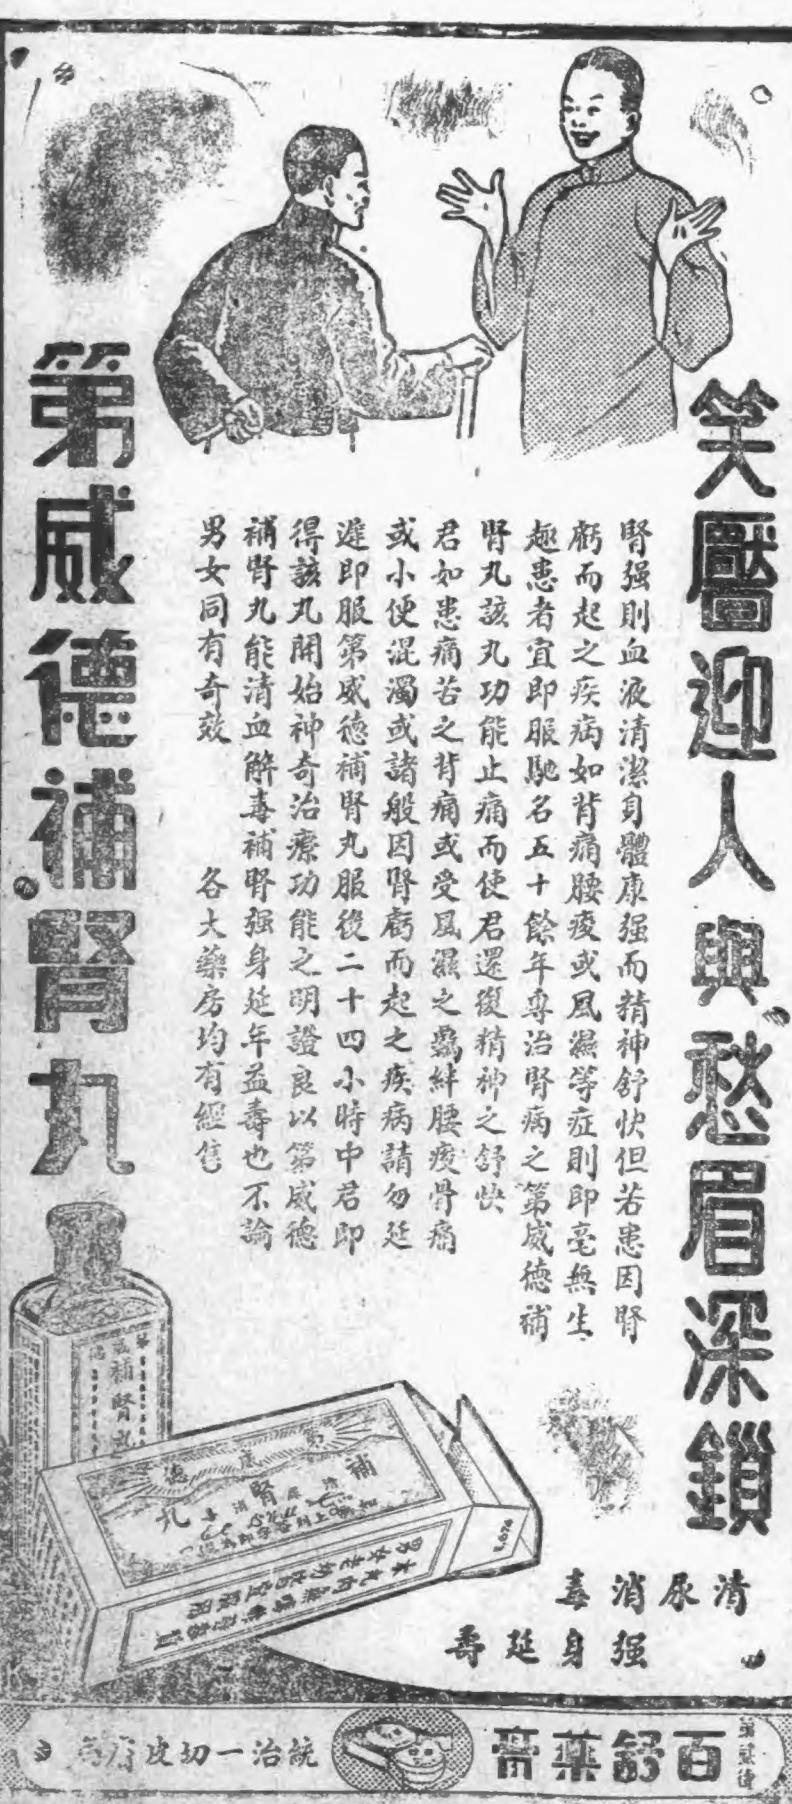 笑靨迎人與愁眉深鎖
腎强則血液清潔身體康强而精神舒快但若患因腎
虧而起之疾病如背痛腰痠或風濕等症則即毫無生
趣患者宜即服馳名五十餘年專治腎病之第威德補
腎丸該丸功能止痛而使君還復精神之舒快
君如患痛苦之背痛或受風濕之羈絆腰痠骨痛
或小便混濁或諸般因腎虧而起之疾病請勿延
遲即服第威德補腎丸服後二十四小時中君即
得該丸開始神奇治療功能之明證良以第威德
補腎丸能清血解毒補腎强身延年益壽也不論
男女同有奇效 各大藥房均有經售
第威德補腎丸
補腎丸
第威德
補腎丸
清尿消毒
强身延壽
第威德
百舒藥膏
統治一切皮膚